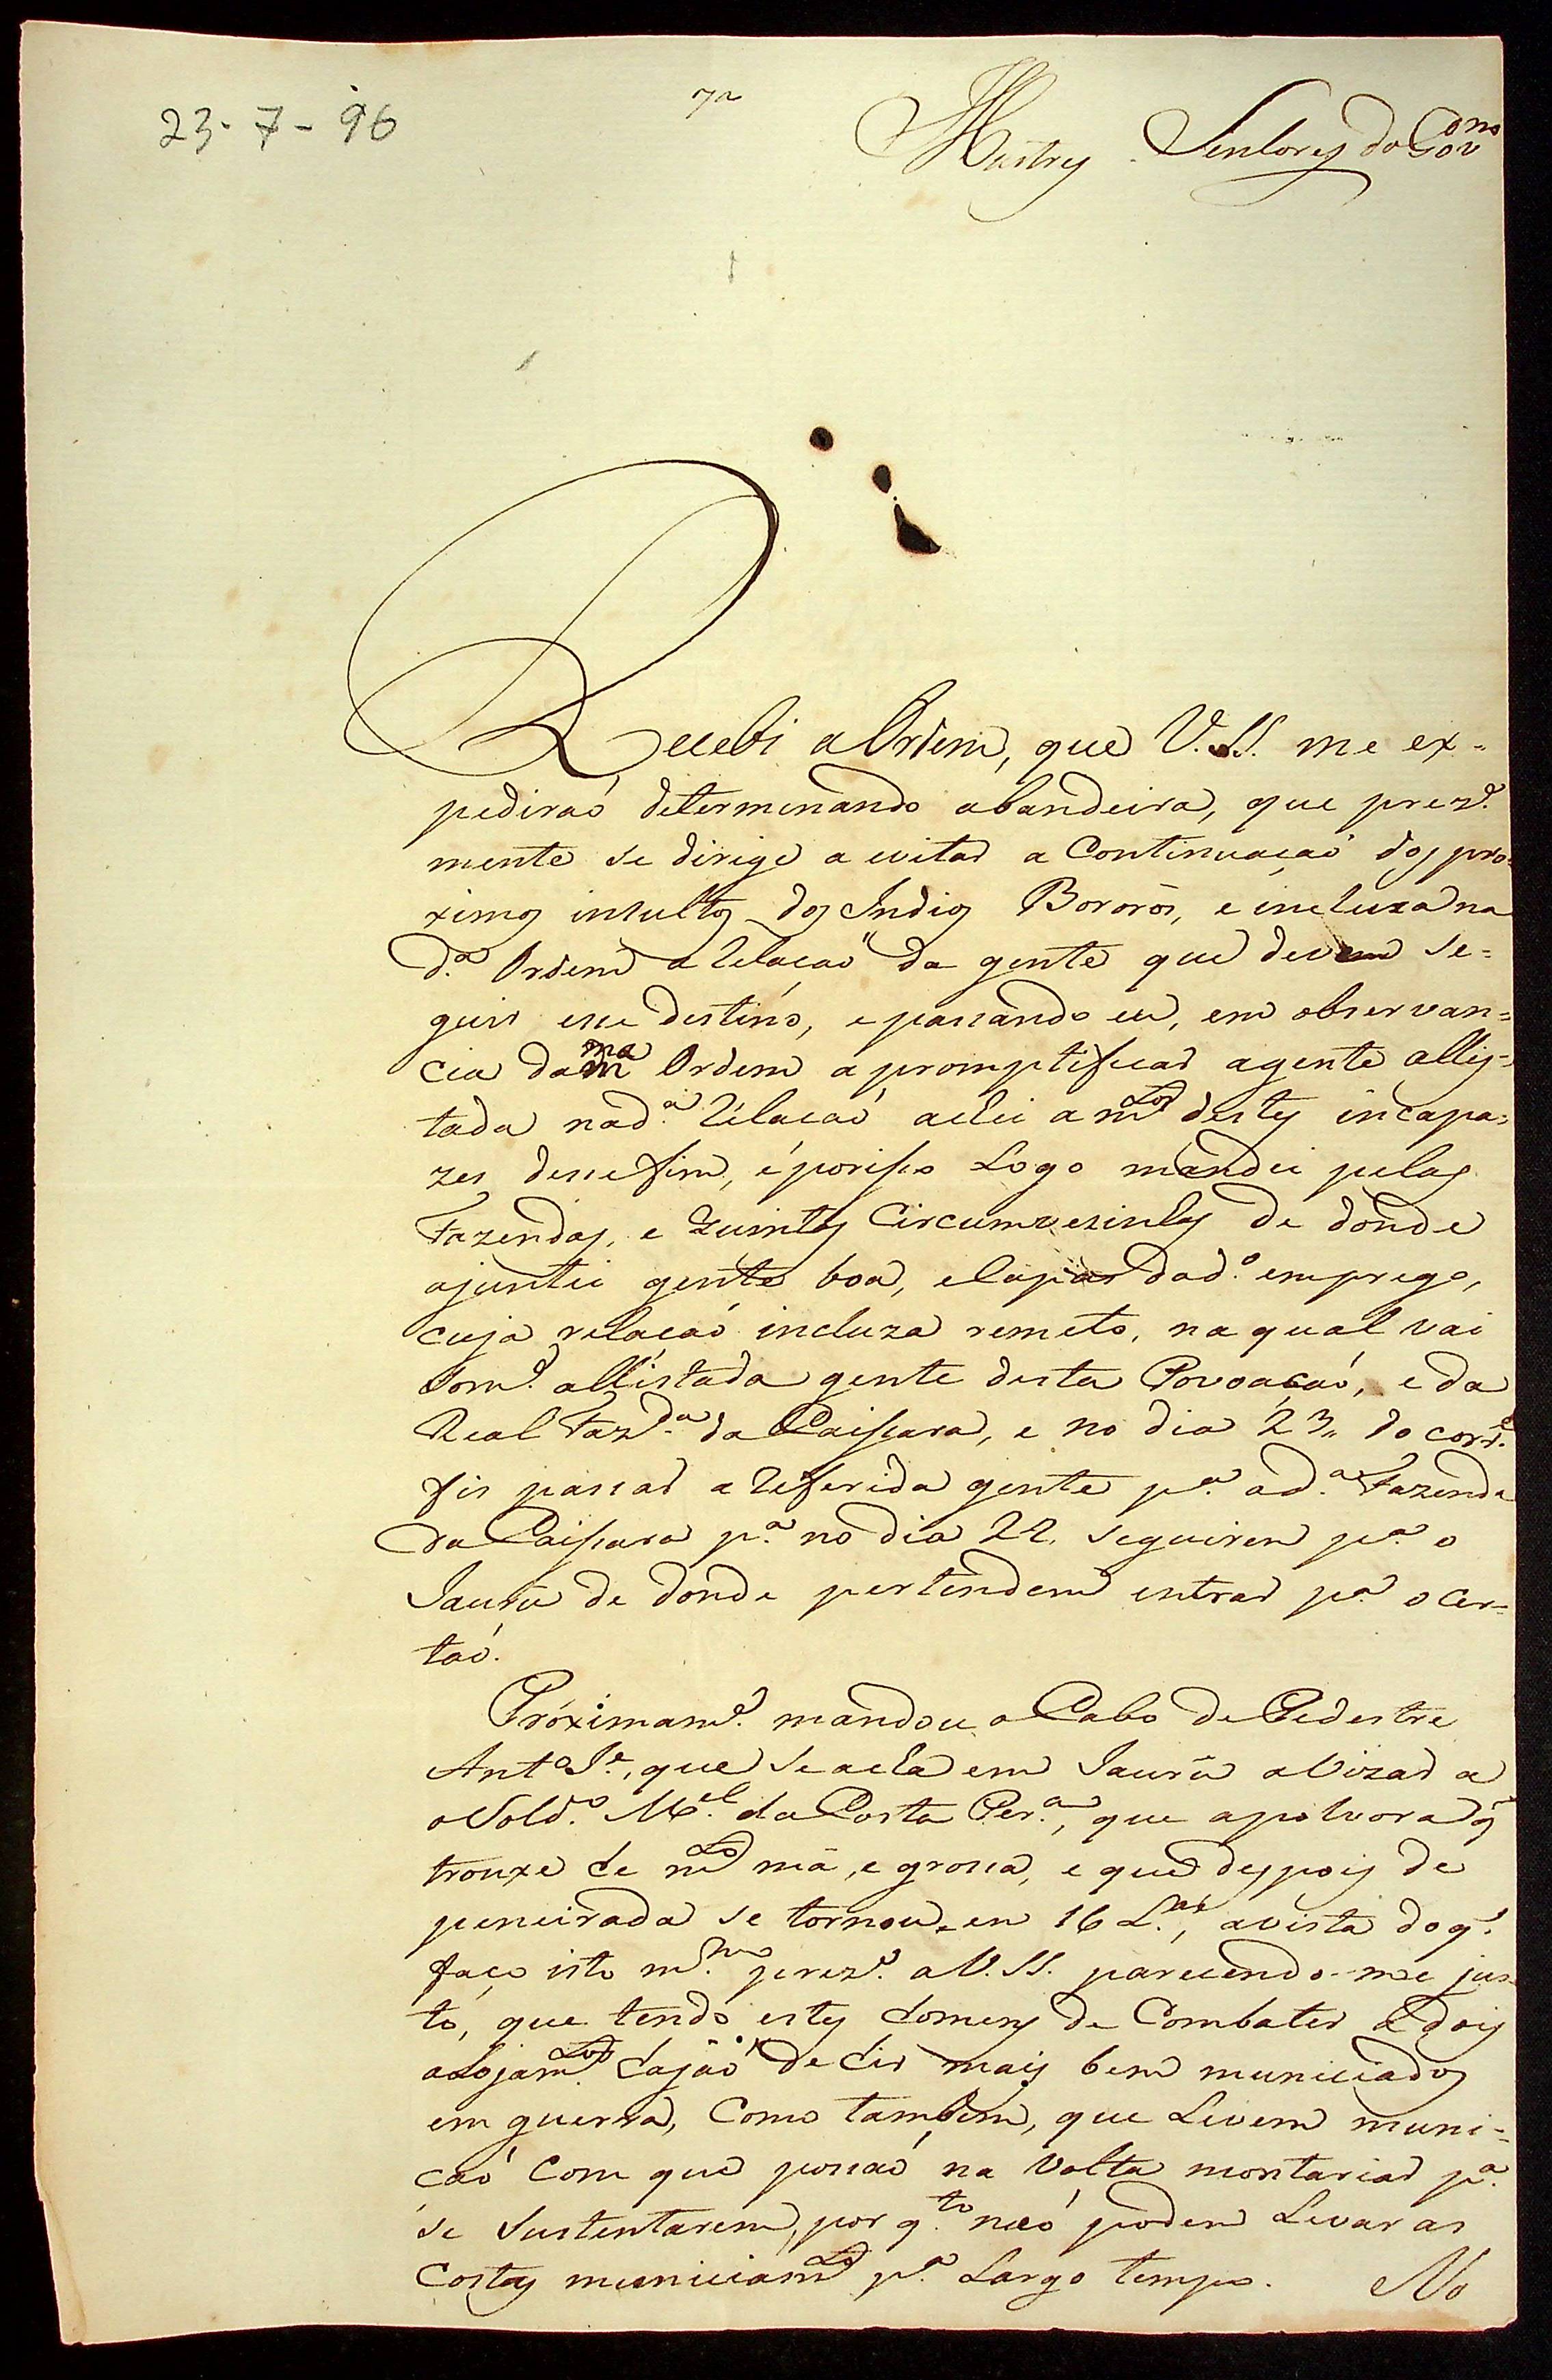 23-7-96
7a
Illustres Senhores do Gov
Recebi a Ordem, que V.SS. me ex-
pediraó determinando abandeira, que prez.e
mente se dirige a evitar a Continuaçaó dos pro-
ximos insultos dos Indios Bororós, e incluza na
d.a Ordem a relaçaó da gente que devem se-
guir esse destino, e passando eu, em observan-
cia da ma Ordem a promptificar agente allis-
tada nad.a relaçaó achei a m.tos destes incapa-
zes desse fim, e porisso Logo mandei pelas
Fazendas, e Quintas Circumvezinhas de donde
ajuntei gente boa, e Capas do d.o emprego,
cuja relaçaó incluza remeto, na qual vai
som.e allistada gente desta Povoaçaó, e da
Real Faz.da da Caissara, e no dia 23,, do corr.e
fis passar a referida gente p.a a d.a Fazenda
da Caissara p.a no dia 22. seguirem p.a o
Jaurú de donde pertendem entrar p.a o Cer-
taó.
Próximam.e mandou o Cabo de Pedestre
Ant.o J.e, que se acha em Jaurú avizar a
o Sold.o M.el da Costa Per.a, que apolvora q
trouxe he m.to má, e grossa, e que despois de
peneirada se tornou em 16 L.as, avista do q.
faço isto m.mo prez.e a V.SS. parecendo-me jus-
to, que tendo estes homens de Combater a dois
alojam.tos hajaó de hir mais bem municiados
em guerra, Como tambem, que Levem muni-
çaó Com que possaó na Volta montariar p.a
se Sustentarem, por q.to naó podem Levar as
Costas municiam.to p.a Largo tempo.
No